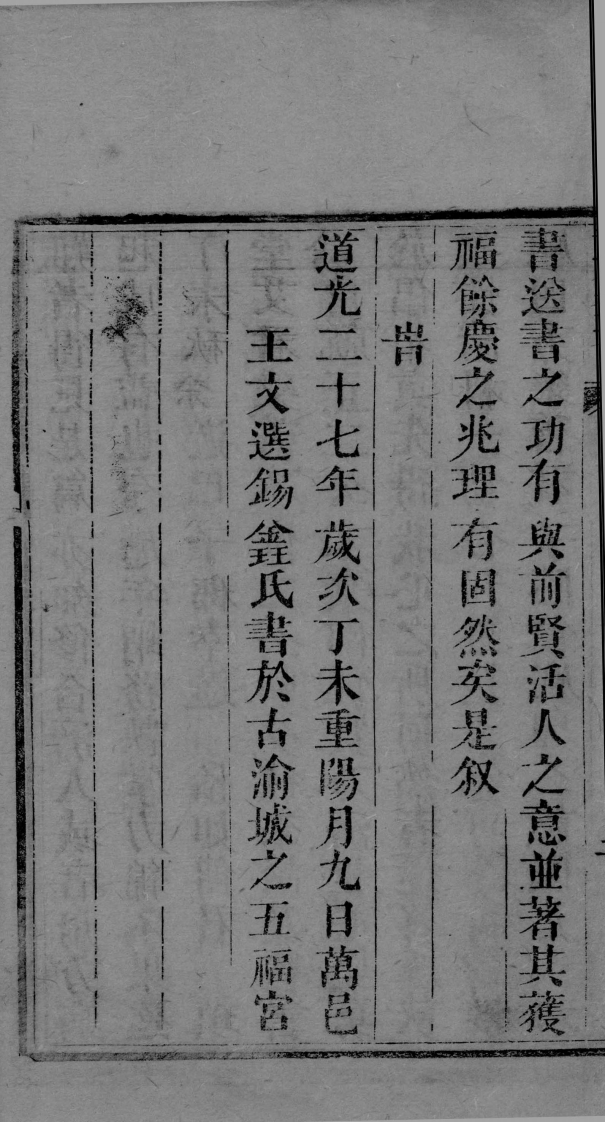 書送書之功有與前賢活人之意並著其獲
福餘慶之兆理有固然矣是叙
旹
道光二十七年歲次丁未重陽月九日萬邑
王文選錫鑫氏書於古渝城之五福宮